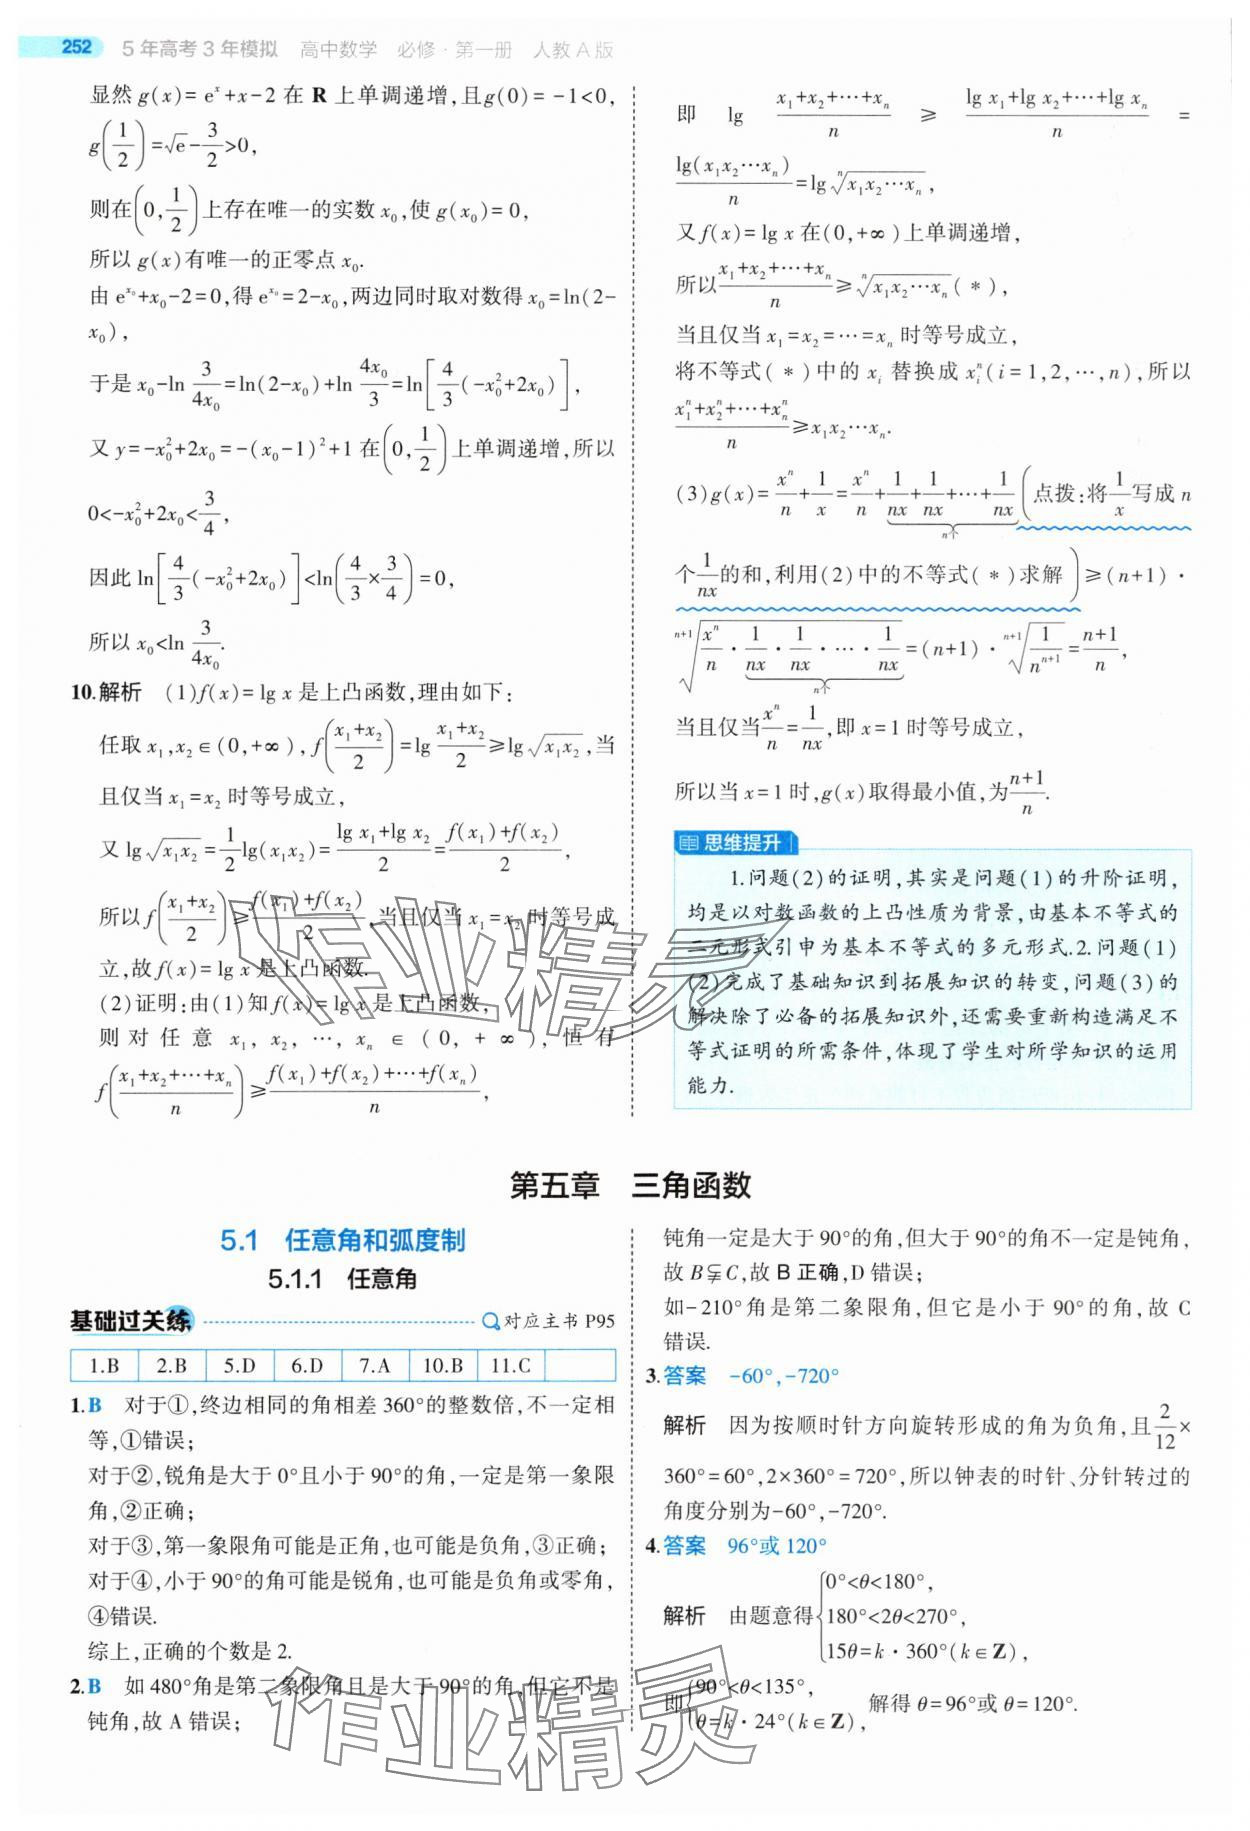 252 5年高考3年模拟 高中数学 必修·第一册 人教A版
显然 g(x)=eˣ+x-2 在 R 上单调递增,且g(0)=-1<0,
g(1/2)=√e-3/2>0,
则在(0,1/2)上存在唯一的实数 x₀,使 g(x₀)=0,
所以 g(x)有唯一的正零点 x₀.
由 e^{x₀}+x₀-2=0,得 e^{x₀}=2-x₀,两边同时取对数得 x₀=ln(2-
x₀),
于是 x₀-ln 3/(4x₀)=ln(2-x₀)+ln 4x₀/3=ln[4/3(-x₀²+2x₀)],
又 y=-x₀²+2x₀=-(x₀-1)²+1 在(0,1/2)上单调递增,所以
0<-x₀²+2x₀<3/4,
因此 ln[4/3(-x₀²+2x₀)]<ln(4/3×3/4)=0,
所以 x₀<ln 3/(4x₀).
10.解析 (1)f(x)=lg x 是上凸函数,理由如下:
任取 x₁,x₂∈(0,+∞),f((x₁+x₂)/2)=lg (x₁+x₂)/2≥lg√(x₁x₂),当
且仅当 x₁=x₂ 时等号成立,
又 lg√(x₁x₂)=1/2lg(x₁x₂)=(lg x₁+lg x₂)/2=(f(x₁)+f(x₂))/2,
所以 f((x₁+x₂)/2)≥(f(x₁)+f(x₂))/2,当且仅当 x₁=x₂ 时等号成
立,故 f(x)=lg x 是上凸函数.
(2)证明:由(1)知 f(x)=lg x 是上凸函数,
则对任意 x₁, x₂, …, xₙ ∈ (0, +∞), 恒有
f((x₁+x₂+…+xₙ)/n)≥(f(x₁)+f(x₂)+…+f(xₙ))/n,
即 lg (x₁+x₂+…+xₙ)/n ≥ (lg x₁+lg x₂+…+lg xₙ)/n =
lg(x₁x₂…xₙ)/n=lg ⁿ√(x₁x₂…xₙ),
又 f(x)=lg x 在(0,+∞)上单调递增,
所以(x₁+x₂+…+xₙ)/n≥ⁿ√(x₁x₂…xₙ)(*),
当且仅当 x₁=x₂=…=xₙ 时等号成立,
将不等式(*)中的 xᵢ 替换成 xᵢⁿ(i=1,2,…,n),所以
(x₁ⁿ+x₂ⁿ+…+xₙⁿ)/n≥x₁x₂…xₙ.
(3)g(x)=xⁿ/n+1/x=xⁿ/n+1/nx+1/nx+…+1/nx(点拨:将1/x写成 n
n个
个1/nx的和,利用(2)中的不等式(*)求解)≥(n+1)·
ⁿ⁺¹√(xⁿ/n·1/nx·1/nx·…·1/nx)=(n+1)·ⁿ⁺¹√(1/nⁿ⁺¹)=(n+1)/n,
n个
当且仅当xⁿ/n=1/nx,即 x=1 时等号成立,
所以当 x=1 时,g(x)取得最小值,为(n+1)/n.
思维提升
1.问题(2)的证明,其实是问题(1)的升阶证明,
均是以对数函数的上凸性质为背景,由基本不等式的
二元形式引申为基本不等式的多元形式.2.问题(1)
(2)完成了基础知识到拓展知识的转变,问题(3)的
解决除了必备的拓展知识外,还需要重新构造满足不
等式证明的所需条件,体现了学生对所学知识的运用
能力.
第五章 三角函数
5.1 任意角和弧度制
5.1.1 任意角
基础过关练 对应主书 P95
1.B 2.B 5.D 6.D 7.A 10.B 11.C
1.B 对于①,终边相同的角相差 360°的整数倍,不一定相
等,①错误;
对于②,锐角是大于 0°且小于 90°的角,一定是第一象限
角,②正确;
对于③,第一象限角可能是正角,也可能是负角,③正确;
对于④,小于 90°的角可能是锐角,也可能是负角或零角,
④错误.
综上,正确的个数是 2.
2.B 如 480°角是第二象限角且是大于 90°的角,但它不是
钝角,故 A 错误;
钝角一定是大于 90°的角,但大于 90°的角不一定是钝角,
故 B⫋C,故 B 正确,D 错误;
如-210°角是第二象限角,但它是小于 90°的角,故 C
错误.
3.答案 -60°,-720°
解析 因为按顺时针方向旋转形成的角为负角,且2/12×
360°=60°,2×360°=720°,所以钟表的时针、分针转过的
角度分别为-60°,-720°.
4.答案 96°或 120°
解析 由题意得{0°<θ<180°,
180°<2θ<270°,
15θ=k·360°(k∈Z),
即{90°<θ<135°,
θ=k·24°(k∈Z), 解得 θ=96°或 θ=120°.
作业精灵
作业精灵